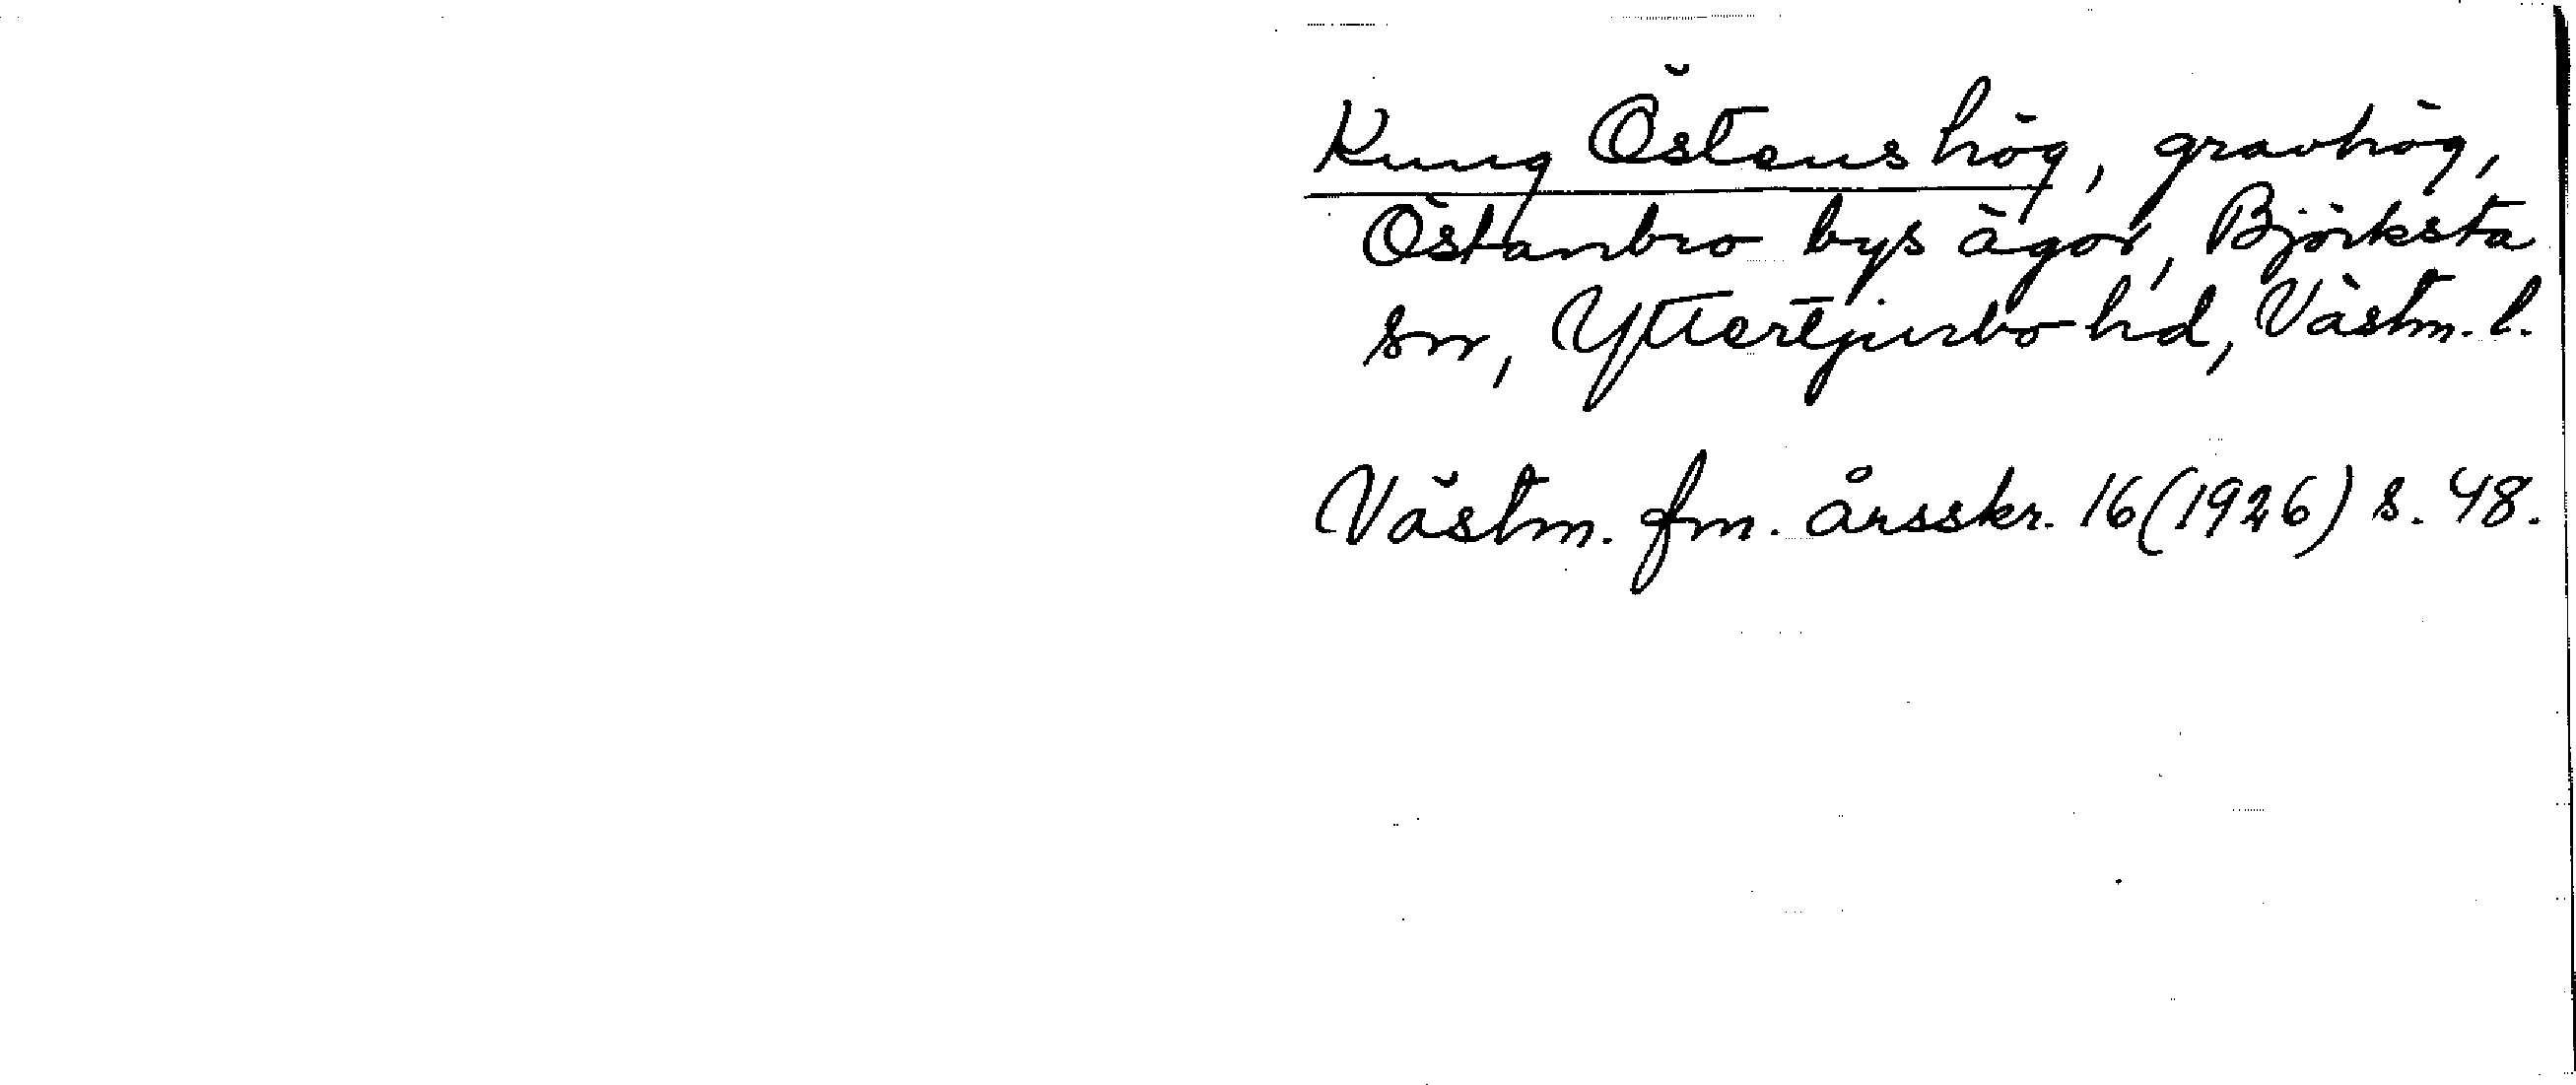 Kung Östens hög, gravhög,
Östanbro bys ägor, Björksta
sn, Yttertjurbo hd, Västm. l.
Västm. fm. årsskr. 16 (1926) s. 48.